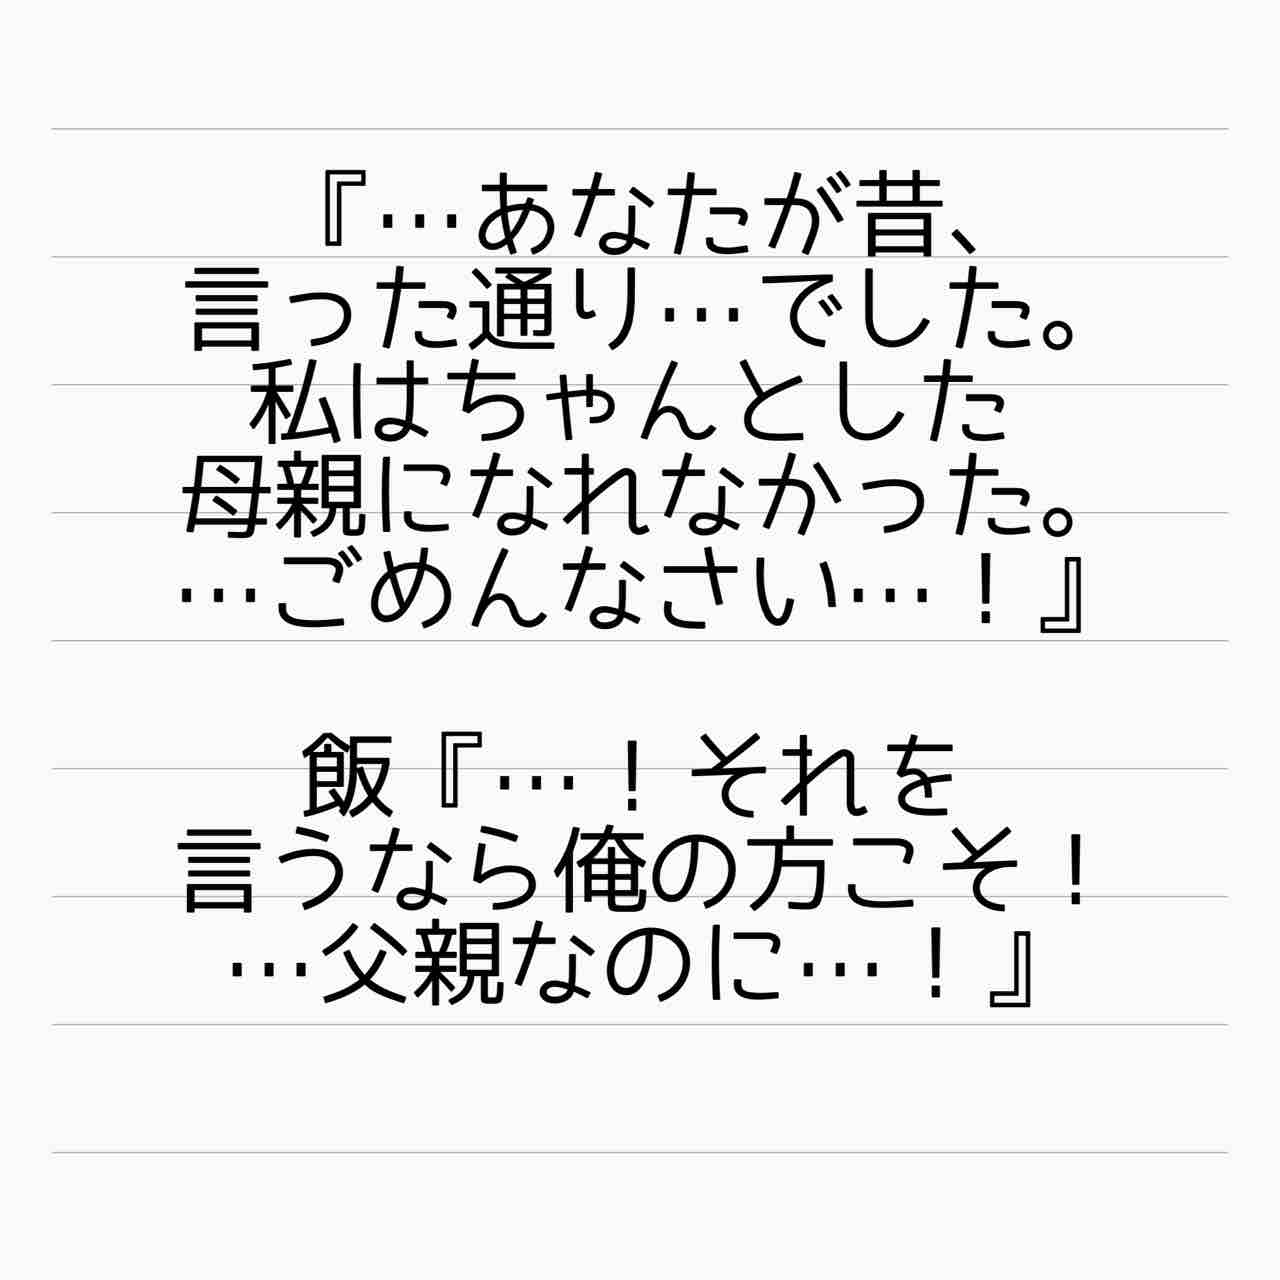 『…あなたが昔、
言った通り…でした。
私はちゃんとした
母親になれなかった。
…ごめんなさい…！』
飯『…！それを
言うなら俺の方こそ！
…父親なのに…！』